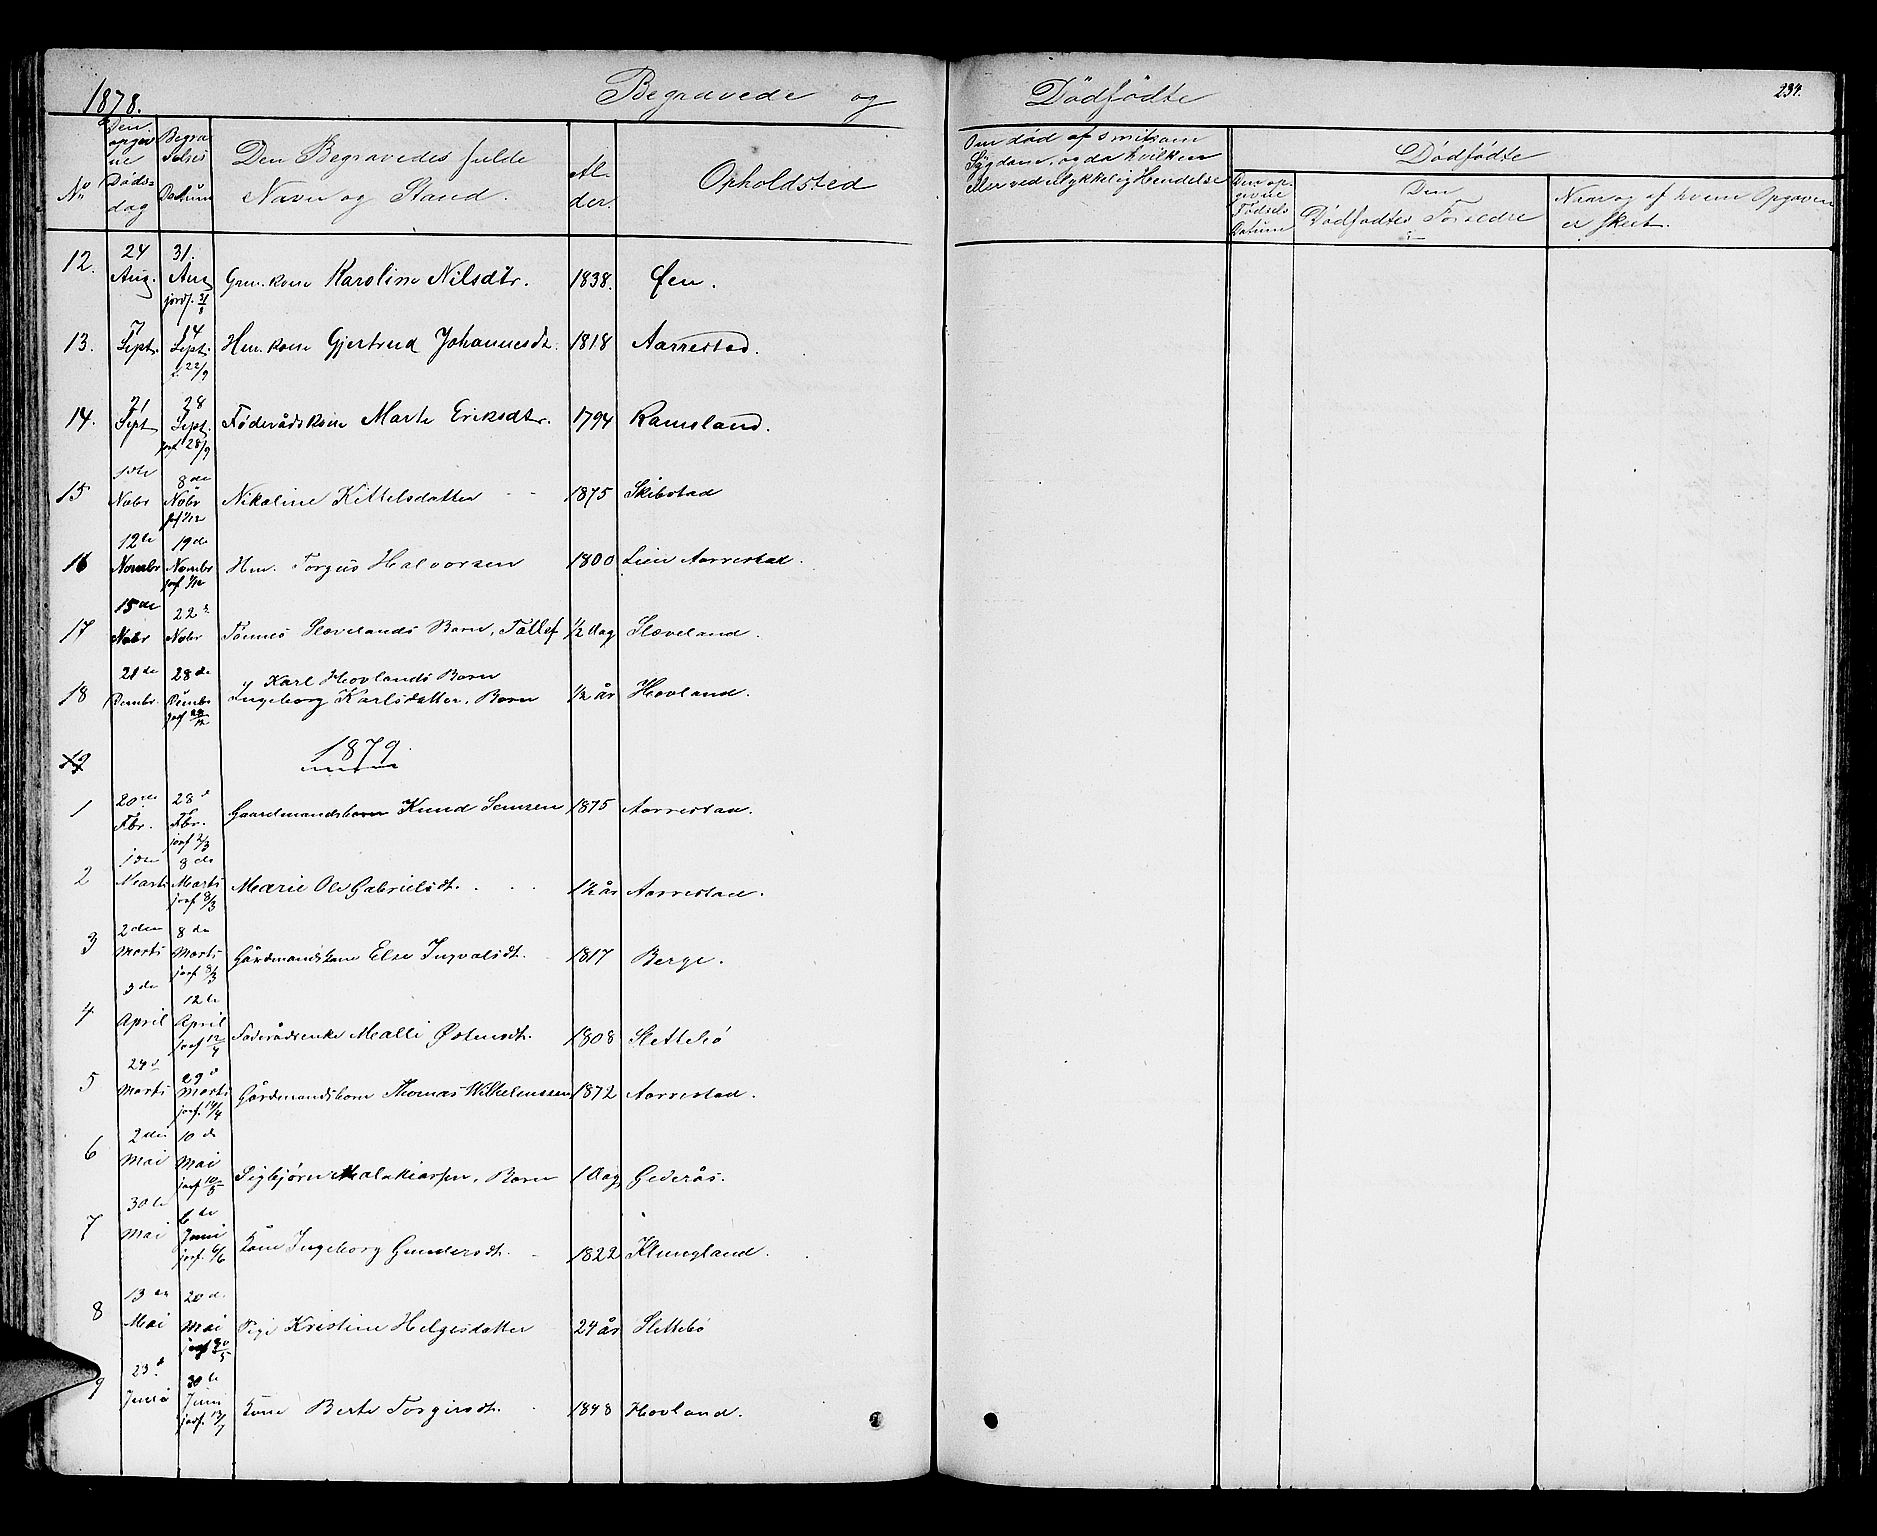 1878. Begravede og Dödfödte 234.
No
Den opgivne Döds-dag
Begravelses Datum
Den Begravedes fulde Navn og Stand.
Al-der.
Opholdsted
Om död af smitsom Sÿgdom, og da hvilken eller ved ulykkelig Hendelse
Dödfödte
Den opgivne Födsels Datum
Den Dödfödtes Foreldre
Naar og af hvem Opgaven er skeet.
12. 24 Aug. 31. Aug jordf. 31/8 Grm. kone Karoline Nilsdtr. 1838. Øen.
13. 7 Sept. 14 Sept. 22/9 Hm. kone Gjertrud Johannesdt. 1818 Aarrestad.
14. 21 Sept 28 Sept. jordf 28/9 Föderådskone Marte Eriksdtr. 1794 Ramsland.
15 1ste Nobr 8de Nobr jof 1/12 Nikoline Kittelsdatter - - 1875 Skibstad
16 12te Novmbr 19de Novmbr jorf 1/12 Hm. Torgus Halvorsen 1800 Lien Aarrestad.
17 15de Nobr 22 Nobr Tönnes Slævelands Barn, Tollef 1/2 Dag Slæveland.
18 21de Dcembr. 28de Dcembr jorf 28/12 Karl Hovlands Barn
Ingeborg Karlsdatter, Barn 1/2 år Hovland.
19 1879.
1 20de Fbr. 28 Fbr. jorf 2/3 Gaardmandsbarn Knud Samsen 1875 Aarrestad.
2 1ste Marts 8de Marts jorf 8/3 Marie Ole Gabrielsdt. - - - 1 1/2 år Aarrestad.
3 2den Marts 8de Marts jorf 8/3 Gårdmandskone Else Ingvalsdt. 1817 Berge.
4 3de April 12te April jorf 12/4 Föderådsenke Malli Østensdt. 1808 Slettebö
5 24de Marts 29de Marts jorf. 14/4 Gårdmandsbarn Thomas Wilhelmssen 1872 Aarrestad.
6 2den Mai 10de Mai jorf 10/5 Sigbjörn Malakiassen, Barn 1 Dag Gjederås.
7 30te Mai 6te Juni jorf. 6/6 Kone Ingeborg Gundersdt. 1822 Klungland.
8 13de Mai 20de Mai jorf 20/5 Pige Kristine Helgesdatter 24 år Slettebö
9 23de Juni 30te Juni jorf. Kone Berte Torgersdt. 1848 Hovland.